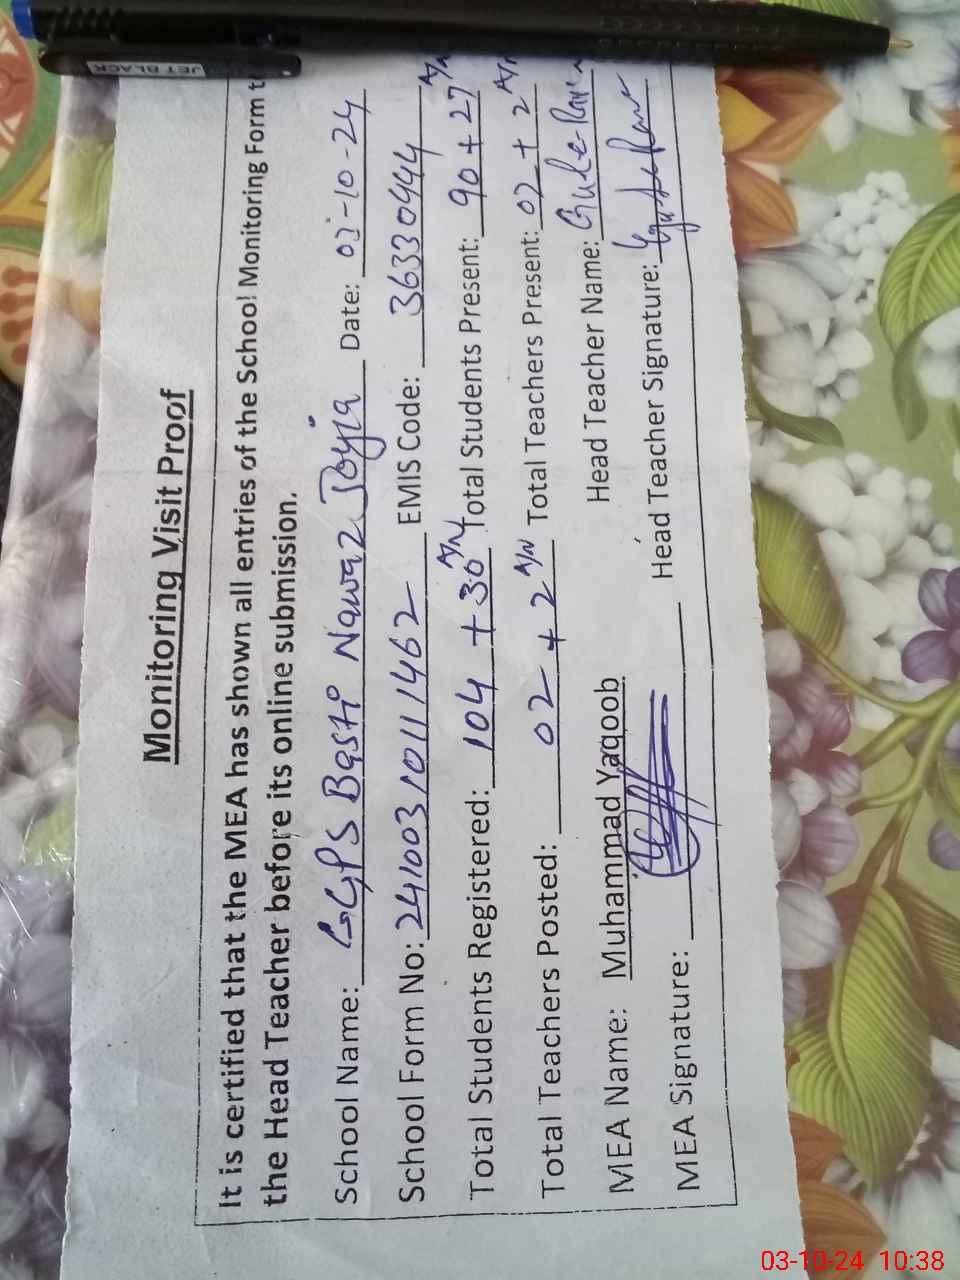 JET BLACK
Monitoring Visit Proof
It is certified that the MEA has shown all entries of the School Monitoring Form t
the Head Teacher before its online submission.
School Name: GGPS Basti Nawaz Joyia Date: 03-10-24
School Form No: 24100310111462 EMIS Code: 36330444
Total Students Registered: 104 + 30 A/N Total Students Present: 90 + 27 A/N
Total Teachers Posted: 02 + 2 A/N Total Teachers Present: 02 + 2 A/N
MEA Name: Muhammad Yaqoob Head Teacher Name:
MEA Signature: Head Teacher Signature:
03-10-24 10:38